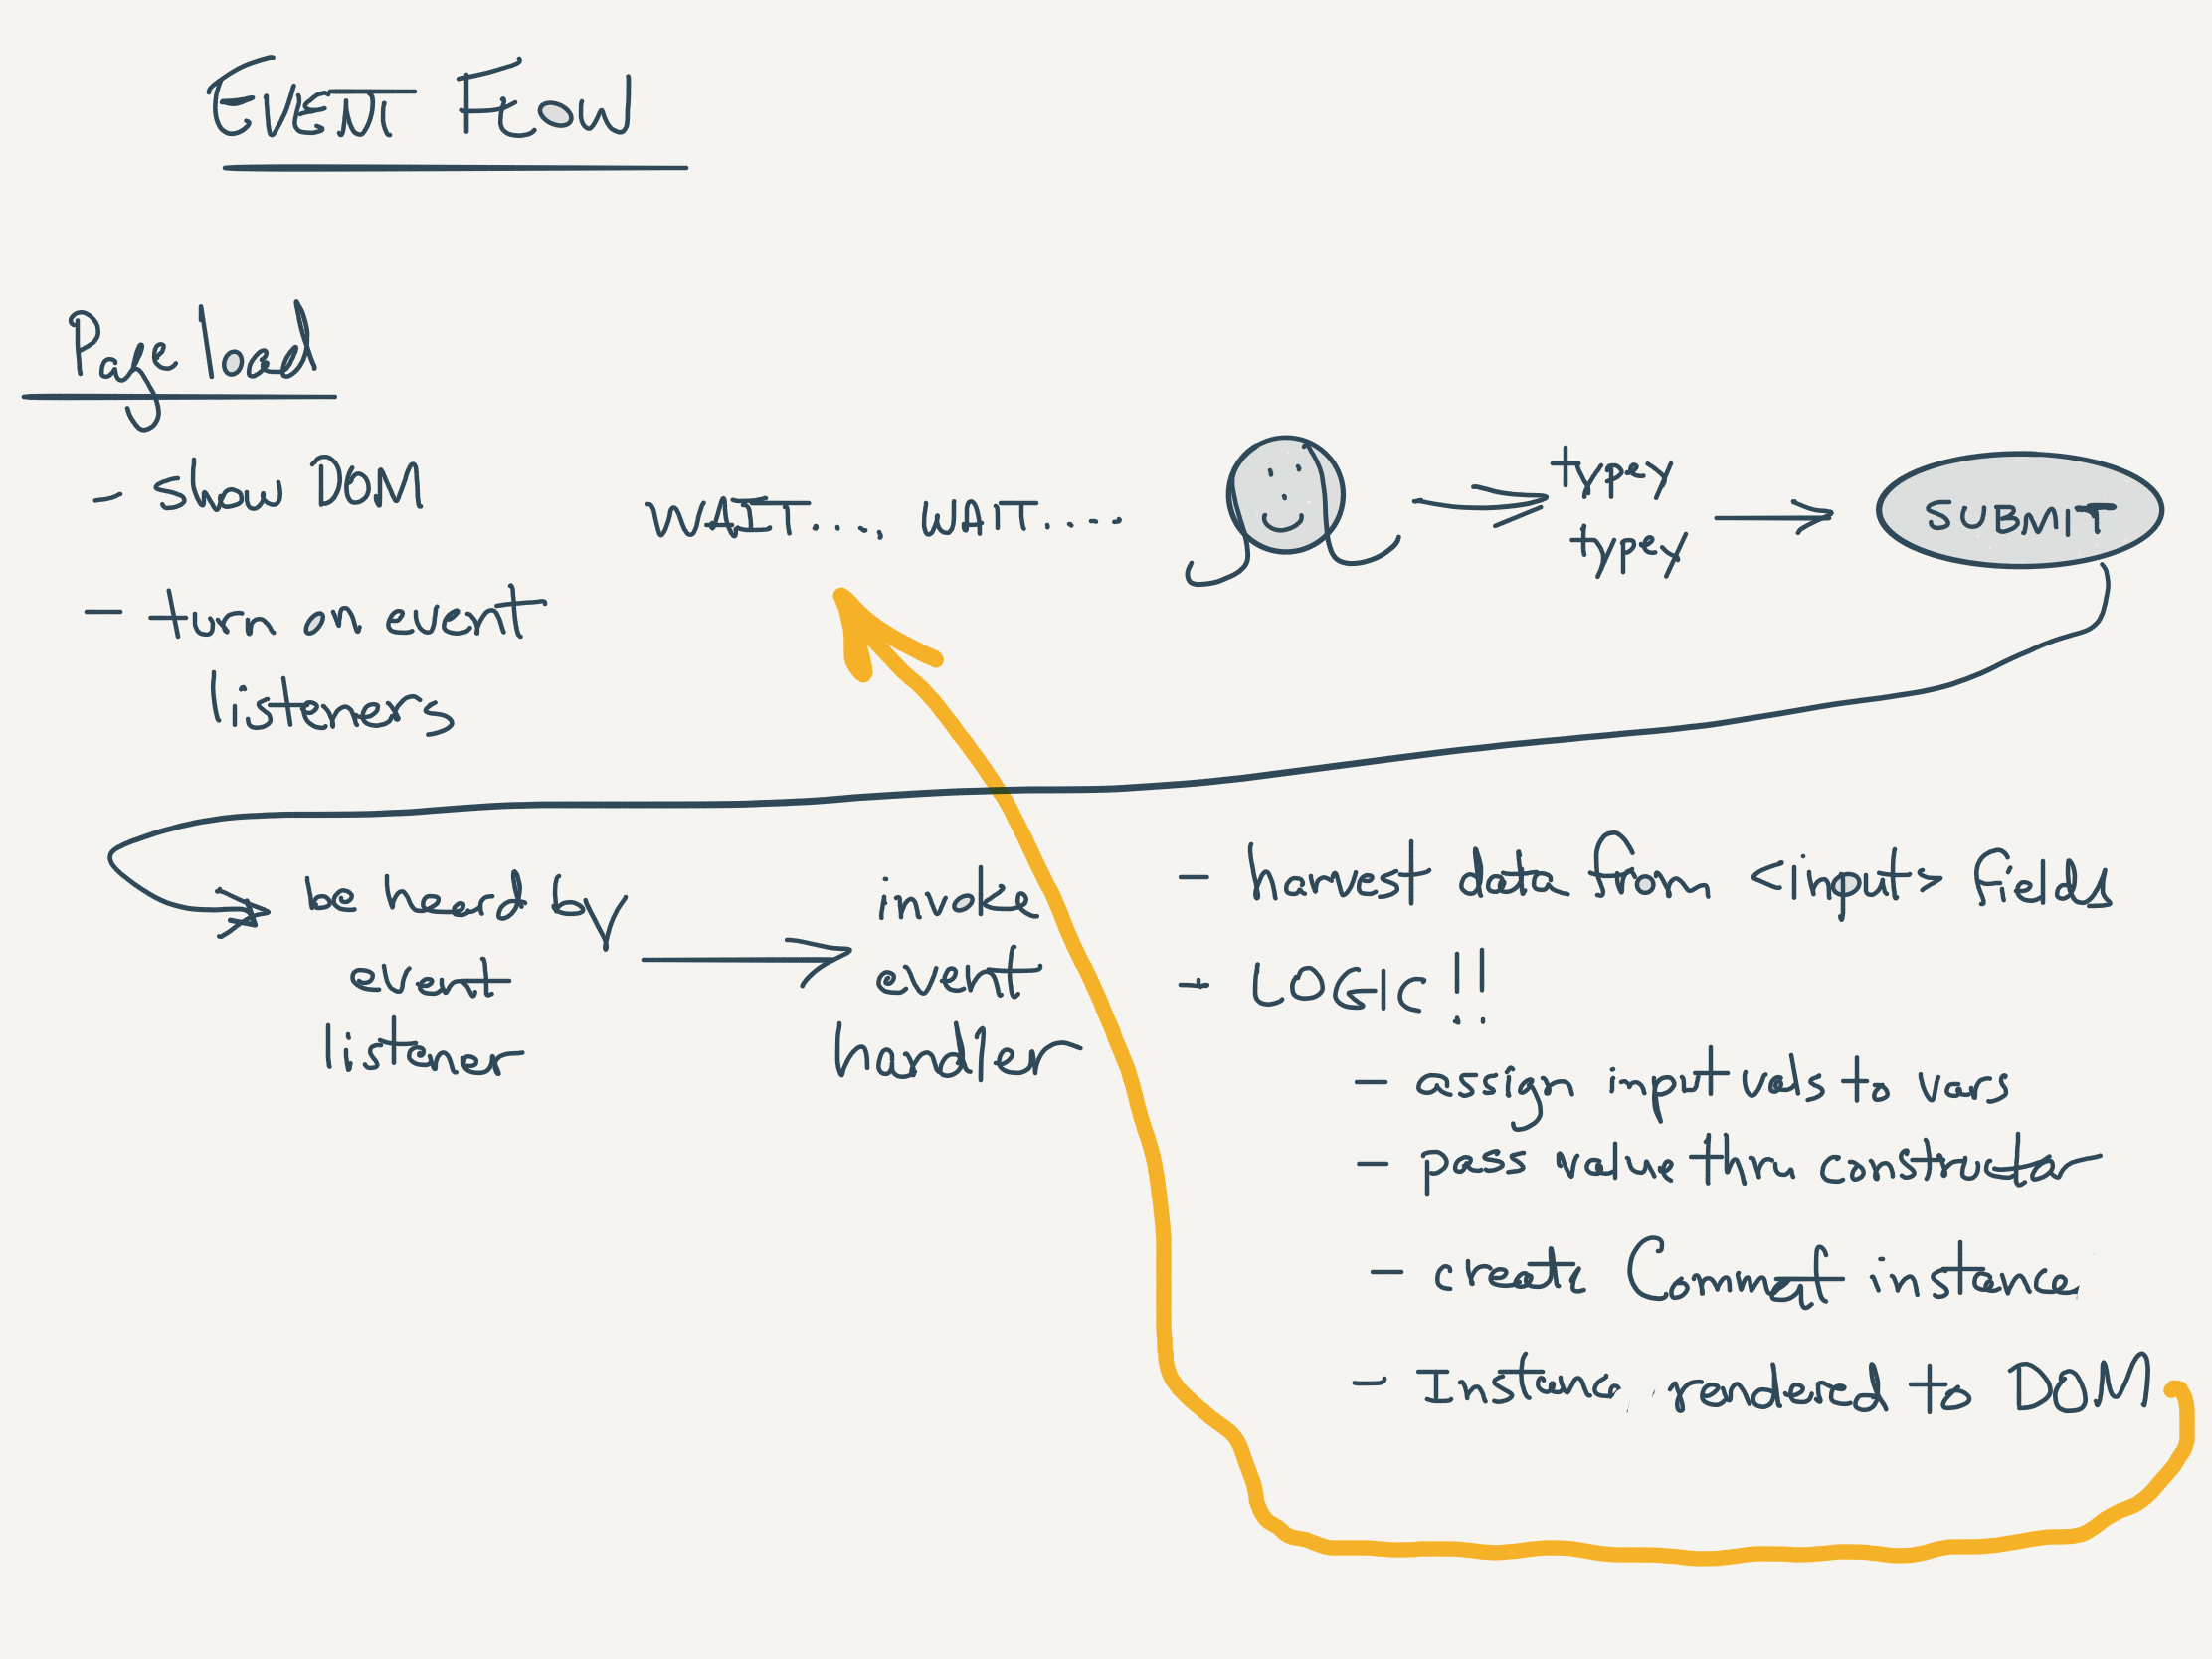 EVENT FLOW
Page load
- show DOM
- turn on event
listeners
WAIT.... WAIT....
typey
typey
SUBMIT
be heard by
event
listener
invoke
event
handler
- harvest data from <input> fields
- LOGIC!!
- assign input vals to vars
- pass value thru constructor
- create Comment instance
- Instance rendered to DOM